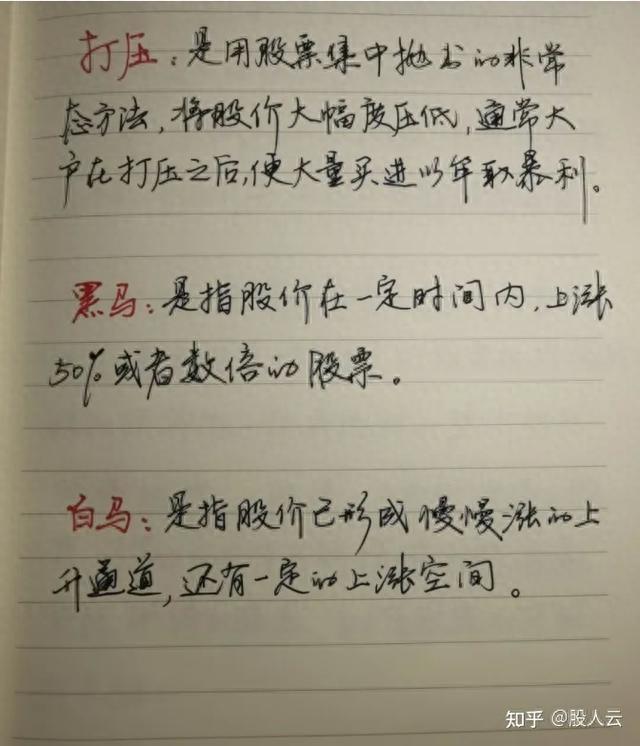 打压：是用股票集中抛出的非常
态方法，将股价大幅度压低，通常大
户在打压之后，便大量买进以牟取暴利。
黑马：是指股价在一定时间内，上涨
50%或者数倍的股票。
白马：是指股价已形成慢慢涨的上
升通道，还有一定的上涨空间。
知乎 @股人云